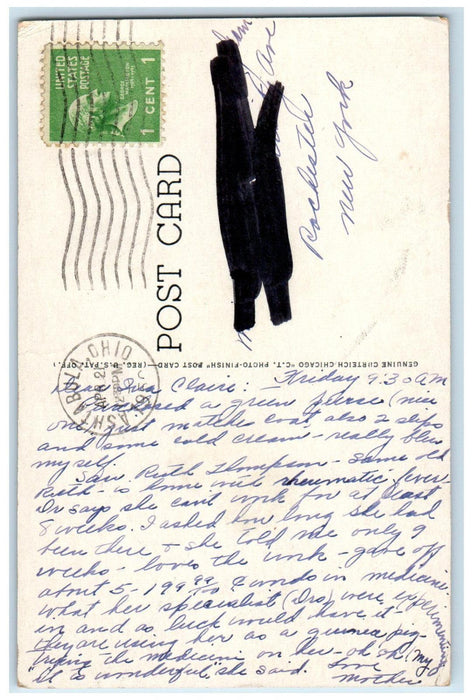 UNITED
STATES
POSTAGE
GEORGE
WASHINGTON
1 CENT 1
Ave
Rochester
New York
POST CARD
GENUINE CURTEICH-CHICAGO "C.T. PHOTO-FINISH" POST CARD—(REG. U.S. PAT. OFF.)
ASHTABULA, OHIO
APR 2
PM
Dear Claire: Friday 9:30 AM
Purchased a green (nice
one just matches coat also 2 slips
and some cold cream - really blew
myself.
Saw Ruth Thompson - same old
Ruth - is home with rheumatic fever.
Dr says she can't work for at least
8 weeks. I asked how long she had
been there & she told me only 9
weeks - loves the work - gave off
about 5-199 words in medicine
what her specialist (Drs) were experimenting
in and as luck would have it -
they are using her as a guinea pig -
trying the medicine on her - oh oh (my
it is wonderful," she said. Love
Mother